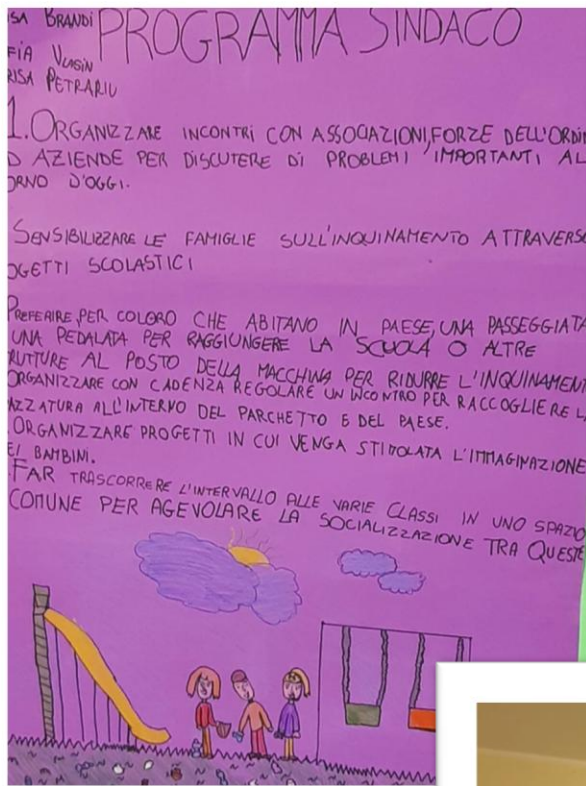 SA BRANDI
PROGRAMMA SINDACO
FIA VLASIN
RISA PETRARIU
1. ORGANIZZARE INCONTRI CON ASSOCIAZIONI, FORZE DELL'ORDIN
D AZIENDE PER DISCUTERE DI PROBLEMI IMPORTANTI AL
ORNO D'OGGI.
SENSIBILIZZARE LE FAMIGLIE SULL'INQUINAMENTO ATTRAVERSO
OGETTI SCOLASTICI
PREFERIRE, PER COLORO CHE ABITANO IN PAESE, UNA PASSEGGIATA
UNA PEDALATA PER RAGGIUNGERE LA SCUOLA O ALTRE
RUTTURE AL POSTO DELLA MACCHINA PER RIDURRE L'INQUINAMEN
ORGANIZZARE CON CADENZA REGOLARE UN INCONTRO PER RACCOGLIERE L
AZZATURA ALL'INTERNO DEL PARCHETTO E DEL PAESE.
ORGANIZZARE PROGETTI IN CUI VENGA STIMOLATA L'IMMAGINAZIONE
EI BAMBINI.
FAR TRASCORRERE L'INTERVALLO ALLE VARIE CLASSI IN UNO SPAZIO
COMUNE PER AGEVOLARE LA SOCIALIZZAZIONE TRA QUESTE